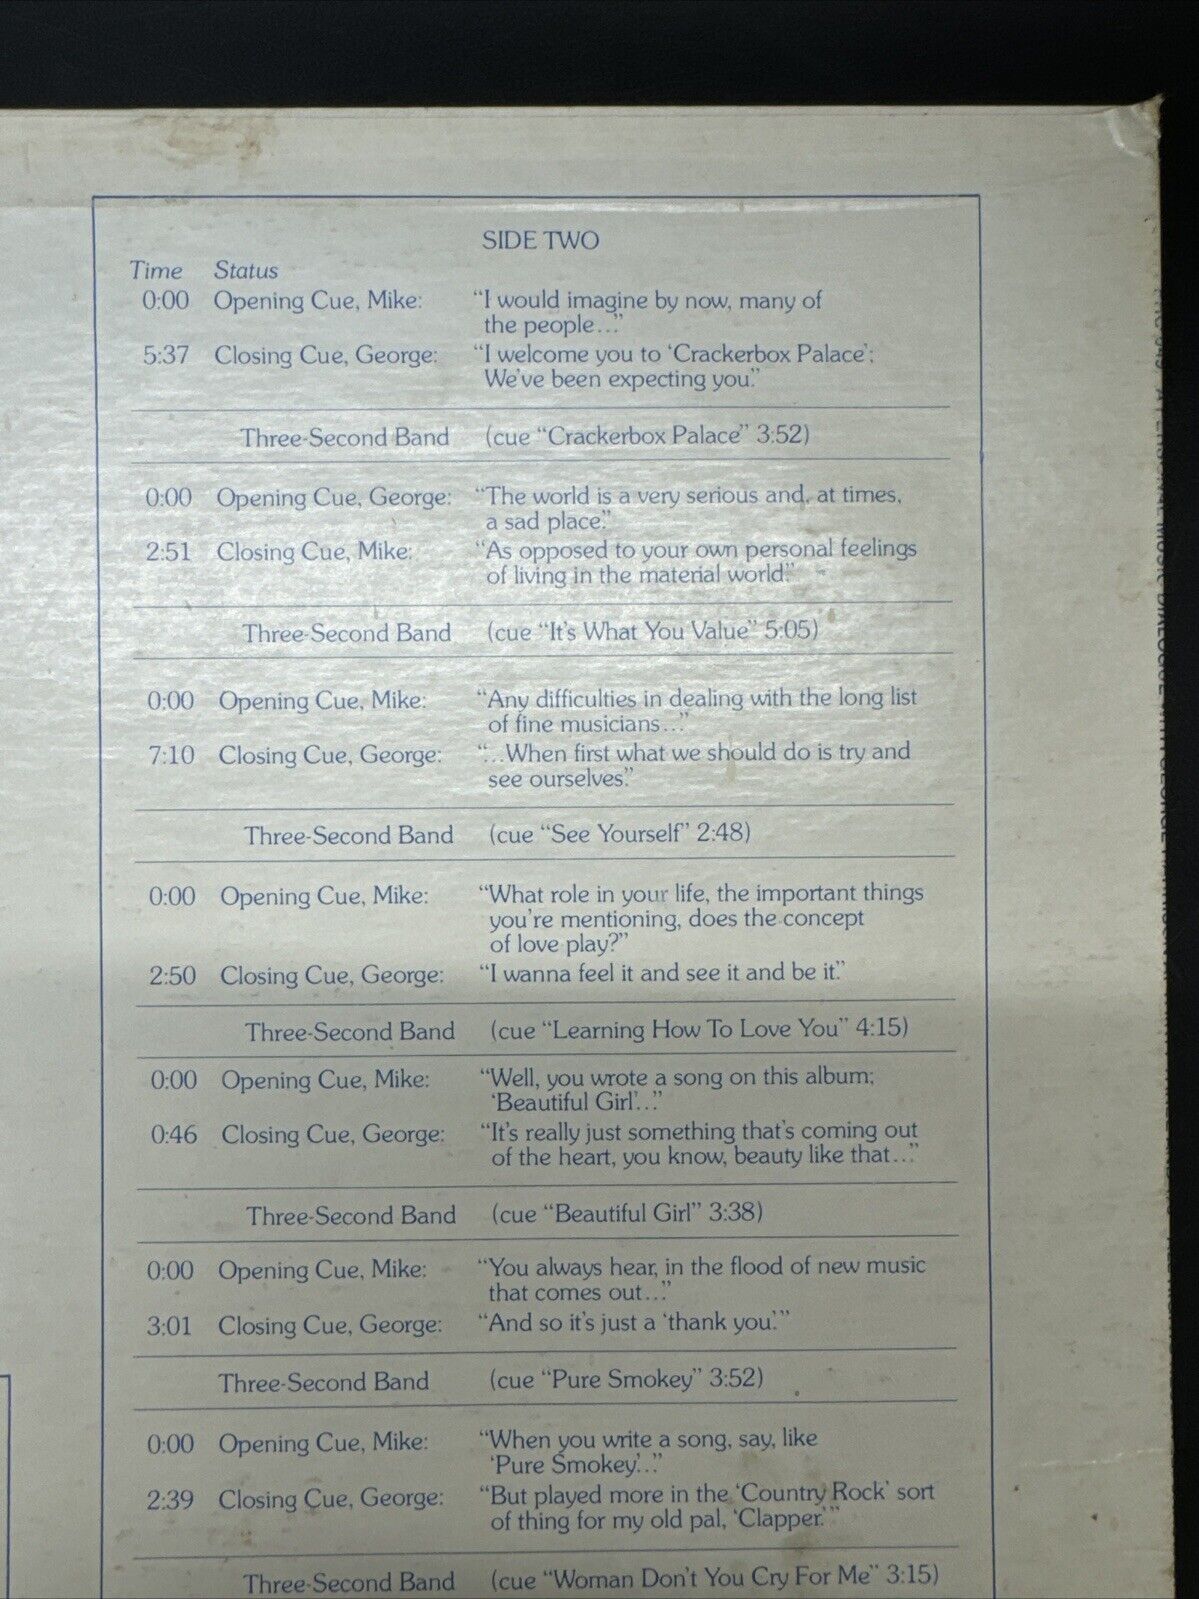 SIDE TWO
Time Status
0:00 Opening Cue, Mike: “I would imagine by now, many of
the people...”
5:37 Closing Cue, George: “I welcome you to ‘Crackerbox Palace’;
We've been expecting you.”
Three-Second Band (cue “Crackerbox Palace” 3:52)
0:00 Opening Cue, George: “The world is a very serious and, at times,
a sad place.”
2:51 Closing Cue, Mike: “As opposed to your own personal feelings
of living in the material world.”
Three-Second Band (cue “It's What You Value” 5:05)
0:00 Opening Cue, Mike: “Any difficulties in dealing with the long list
of fine musicians...”
7:10 Closing Cue, George: “...When first what we should do is try and
see ourselves.”
Three-Second Band (cue “See Yourself” 2:48)
0:00 Opening Cue, Mike: “What role in your life, the important things
you're mentioning, does the concept
of love play?”
2:50 Closing Cue, George: “I wanna feel it and see it and be it.”
Three-Second Band (cue “Learning How To Love You” 4:15)
0:00 Opening Cue, Mike: “Well, you wrote a song on this album;
‘Beautiful Girl’...”
0:46 Closing Cue, George: “It's really just something that's coming out
of the heart, you know, beauty like that...”
Three-Second Band (cue “Beautiful Girl” 3:38)
0:00 Opening Cue, Mike: “You always hear, in the flood of new music
that comes out...”
3:01 Closing Cue, George: “And so it's just a ‘thank you.’”
Three-Second Band (cue “Pure Smokey” 3:52)
0:00 Opening Cue, Mike: “When you write a song, say, like
‘Pure Smokey’...”
2:39 Closing Cue, George: “But played more in the ‘Country Rock’ sort
of thing for my old pal, ‘Clapper.’”
Three-Second Band (cue “Woman Don't You Cry For Me” 3:15)
A PERSONAL MUSIC DIALOGUE WITH GEORGE